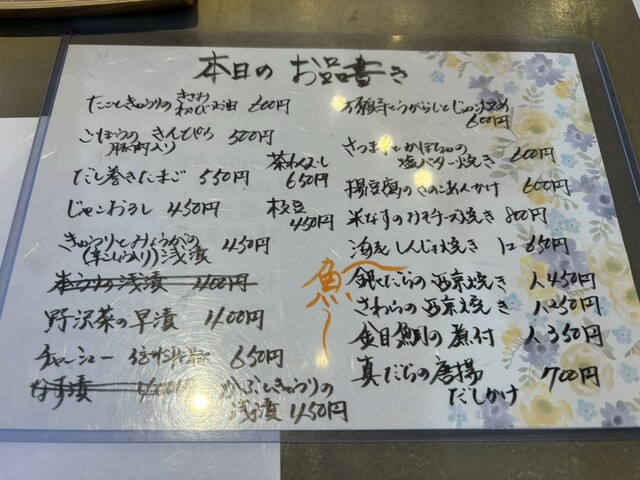 本日のお品書き
たことときゅうりのきざみ
わさび醤油 600円
ごぼうのきんぴら 500円
豚肉入り
だし巻きたまご 550円
茶わんむし
650円
じゃこおろし 450円
枝豆
450円
きゅうりとみょうがの
浅漬 450円
浅漬 400円
野沢菜の早漬 400円
チャーシュー 650円
なす漬 400円
かぶときゅうりの
浅漬 450円
万願寺とうがらしとじゃこ炒め
600円
さつま芋とかぼちゃの
塩バター焼き 600円
揚豆腐のきのこあんかけ 600円
米なすの チーズ焼き 800円
海老しんじょ焼き 1コ 650円
魚
銀だらの西京焼き 1,450円
さわらの西京焼き 1,250円
金目鯛の煮付 1,350円
真だらの唐揚 700円
だしかけ